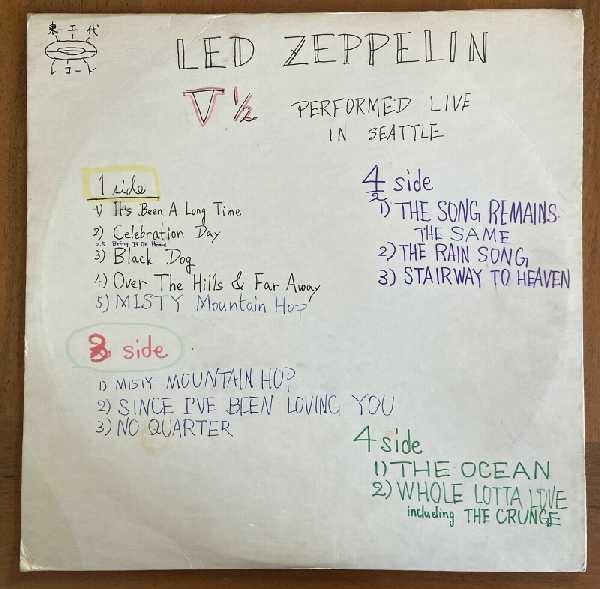 東千代
レコード
LED ZEPPELIN
V 1/2
PERFORMED LIVE
IN SEATTLE
1 side
1) It's Been A Long Time
2) Celebration Day
2.5 Bring It On Home
3) Black Dog
4) Over The Hills & Far Away
5) MISTY Mountain Hop
side
1) MISTY MOUNTAIN HOP
2) SINCE I'VE BEEN LOVING YOU
3) NO QUARTER
4 side
2
1) THE SONG REMAINS
THE SAME
2) THE RAIN SONG
3) STAIRWAY TO HEAVEN
4 side
1) THE OCEAN
2) WHOLE LOTTA LOVE
including THE CRUNGE